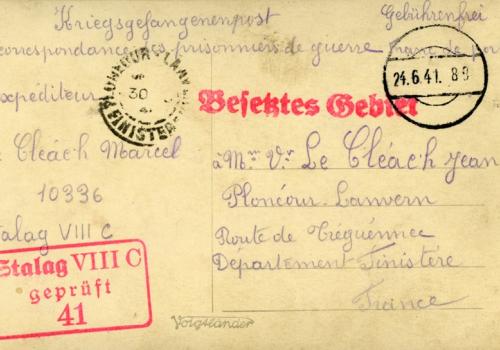 Kriegsgefangenenpost Gebührenfrei
correspondance des prisonniers de guerre franc de por
expéditeur
FINISTERE
30
24.6.41. 8 9
Besetztes Gebiet
Le Cléac'h Marcel
à Mr Vr Le Cléac'h Jean
10336
Plonéour-Lanvern
talag VIII C
Route de Tréguennec
Stalag VIII C
geprüft
41
Département Finistère
France
Voigtländer